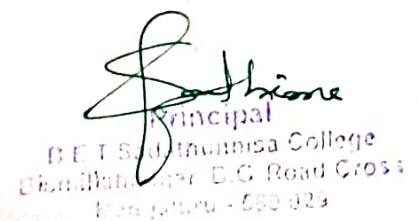 Principal
B E T Sadathunnisa College
Bismillahnagar B.G Road Cross
- 560 029